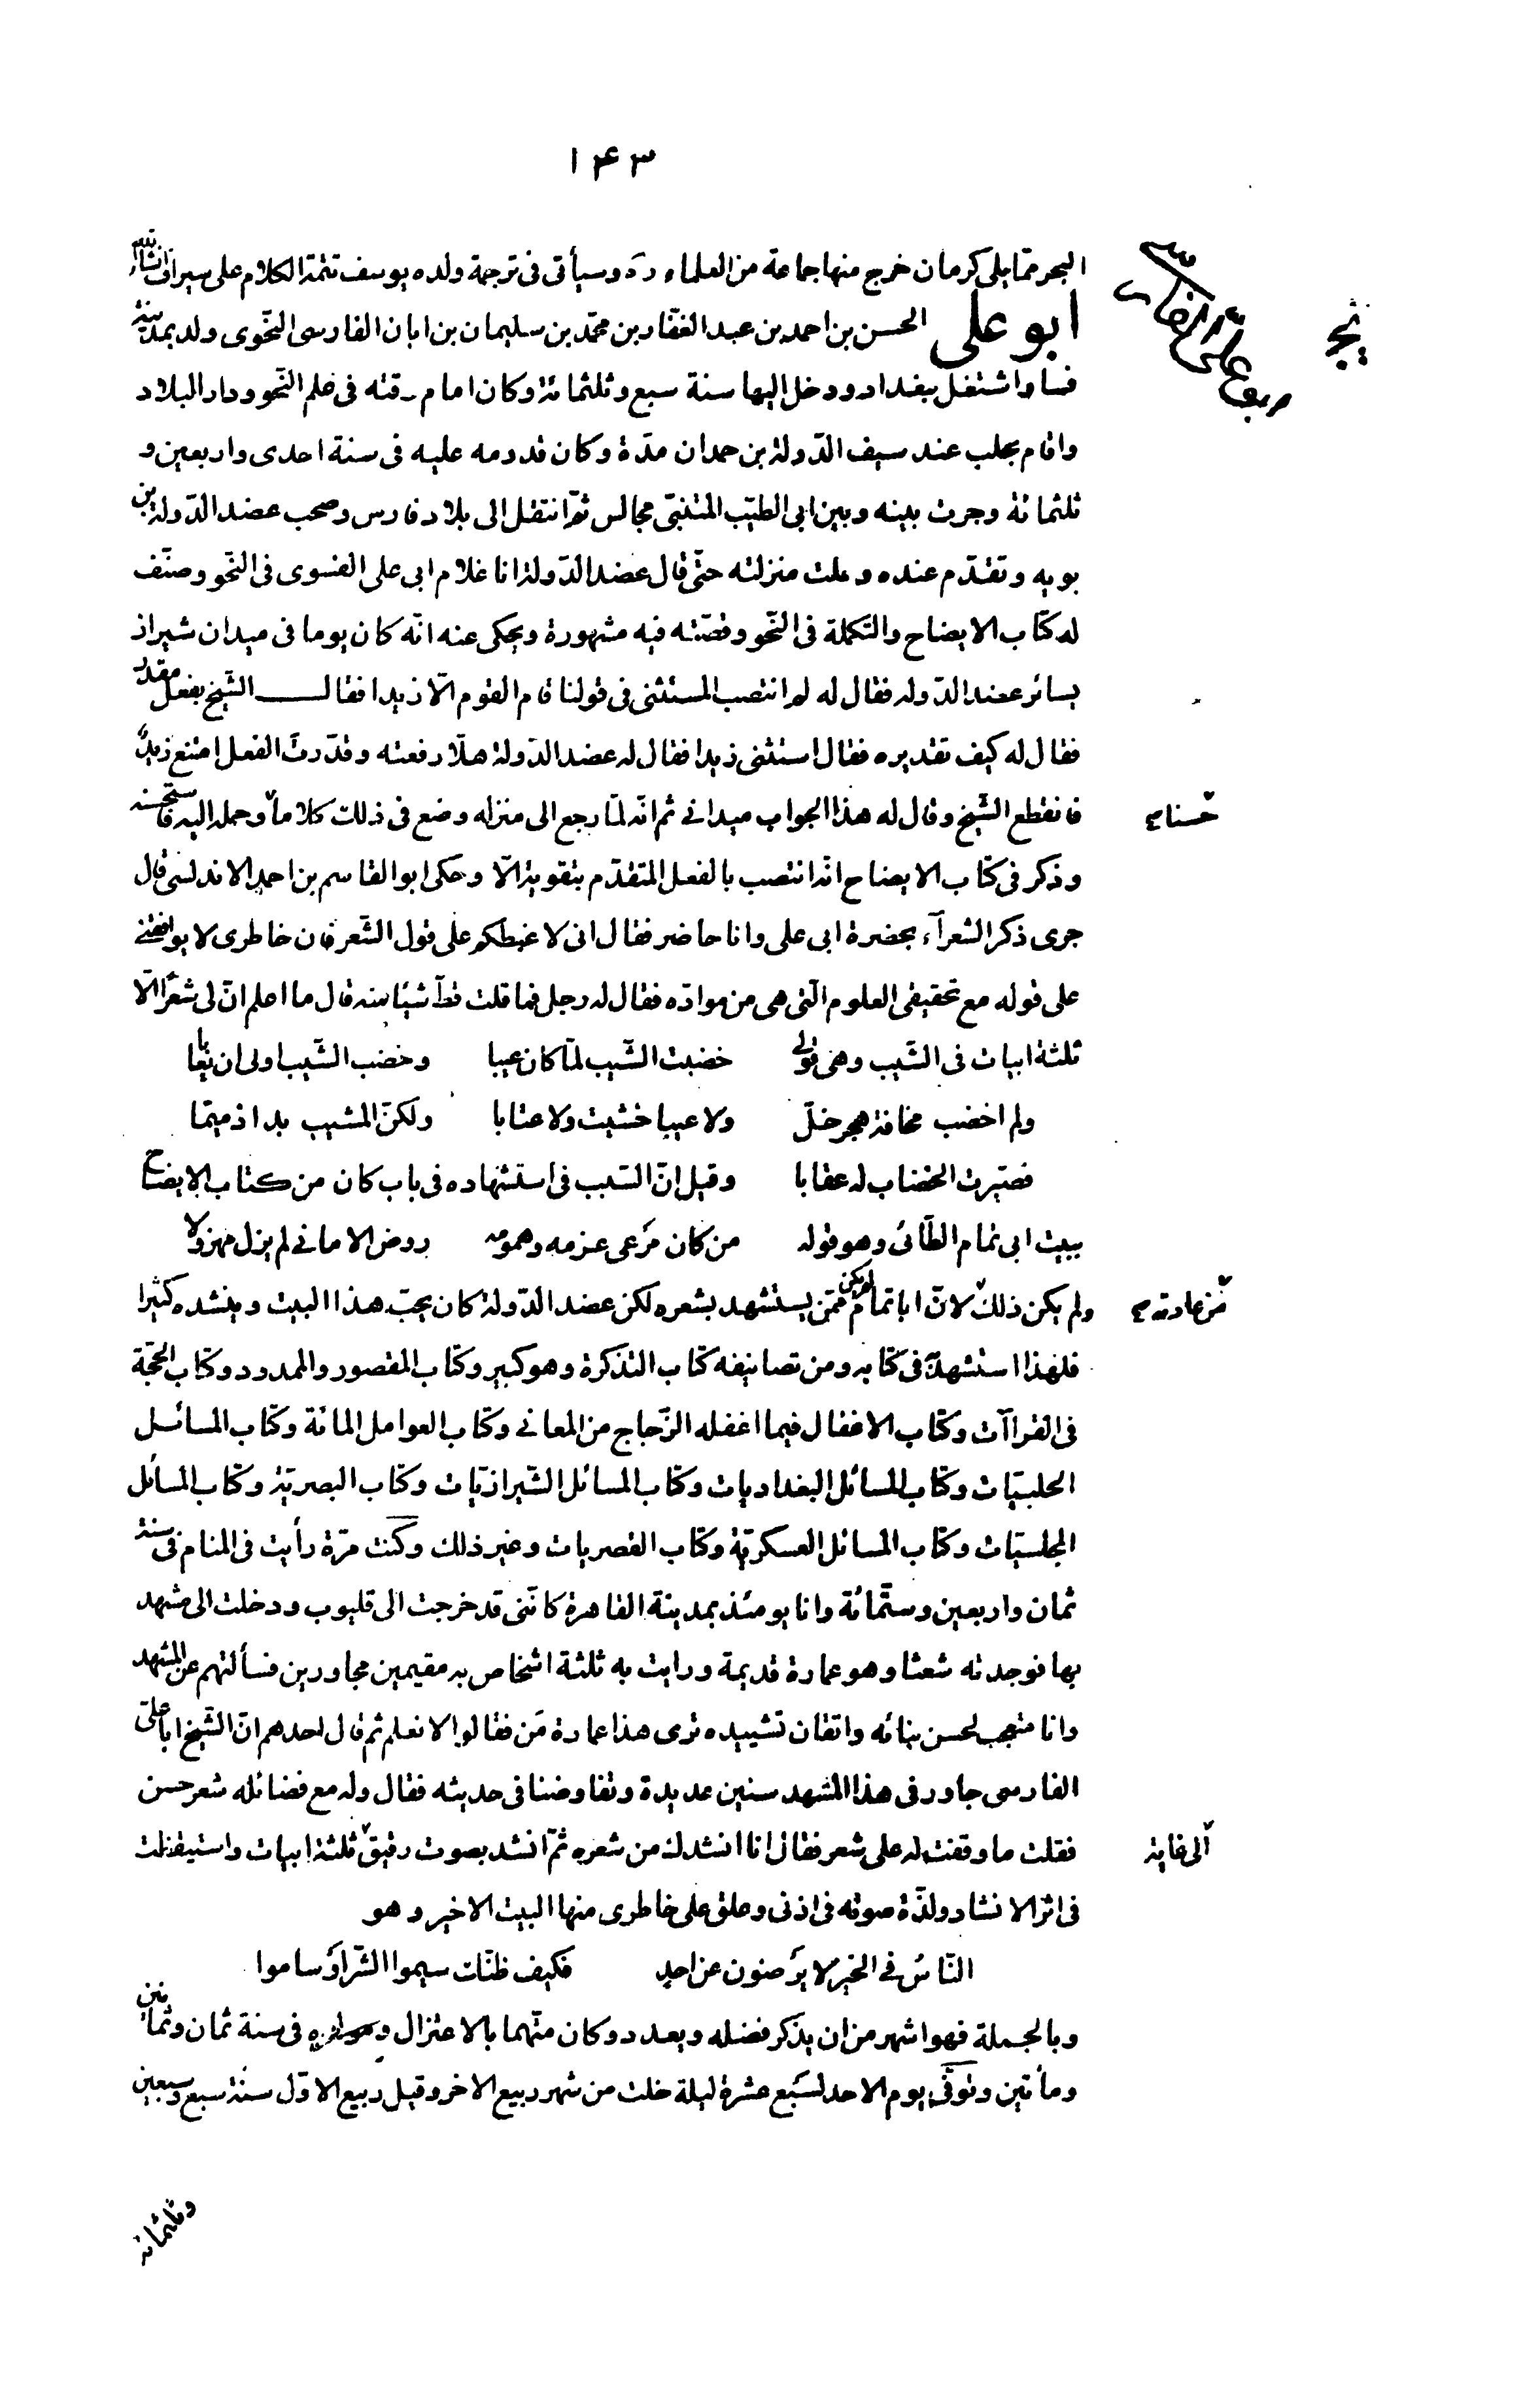 ۱۴۳
البحر ممّا يلى كرمان خرج منها جماعة من العلماء ره وسيأتى فى ترجمة ولده يوسف تتمّة الكلام على سيراف انشاء الله
ابو على الحسن بن احمد بن عبد الغفّار بن محمّد بن سليمان بن ابان الفارسى النّحوى ولد بمدينة
فسا واشتغل ببغداد ودخل اليها سنة سبع وثلثمائة وكان امام وقته فى علم النّحو ودار البلاد
واقام بحلب عند سيف الدّولة بن حمدان مدّة وكان قدومه عليه فى سنة احدى واربعين و
ثلثمائة وجرت بينه وبين ابى الطيّب المتنبّى مجالس ثمّ انتقل الى بلاد فارس وصحب عضد الدّولة بن
بويه وتقدّم عنده وعلت منزلته حتّى قال عضد الدّولة انا غلام ابى على الفسوى فى النّحو وصنّف
له كتاب الايضاح والتكملة فى النّحو وقصّته فيه مشهورة ويحكى عنه انّه كان يوما فى ميدان شيراز
يسائر عضد الدّوله فقال له لم انتصب المستثنى فى قولنا قام القوم الّا زيدا فقال الشّيخ بفعل مقدر
فقال له كيف تقديره فقال استثنى زيدا فقال له عضد الدّولة هلّا رفعته وقدّرت الفعل امتنع زيدٌ
فانقطع الشّيخ وقال له هذا الجواب ميدانى ثم انّه لمّا رجع الى منزله وضع فى ذلك كلاما وحمله اليه فاستحسنه
حسنا صح
وذكر فى كتاب الايضاح انّه انتصب بالفعل المتقدّم بتقوية الّا وحكى ابو القاسم بن احمد الاندلسى قال
جرى ذكر الشعرآء بحضرة ابى على وانا حاضر فقال انى لاغبطكم على قول الشّعر فان خاطرى لا يوافقنى
على قوله مع تحقيقى العلوم الّتى هى من موادّه فقال له رجل فما قلت قطّ شيئا منه قال ما اعلم انّ لى شعرًا الّا
ثلثة ابيات فى الشّيب وهى قولى خضبت الشّيب لمّا كان عيبا وخضب الشّيب اولى ان يعابا
ولم اخضب مخافة هجر خلّ ولا عيبا خشيت ولا عتابا ولكنّ المشيب بدا ذميمًا
فصيّرت الخضاب له عقابا وقيل انّ السّبب فى استشهاده فى باب كان من كتاب الايضاح
ببيت ابى تمام الطّائى وهو قوله من كان مرعى عزمه وهمومه روض الامانى لم يزل مهزولا
ولم يكن ذلك لانّ ابا تمام لم يكن ممّن يستشهد بشعره لكن عضد الدّولة كان يحبّ هذا البيت وينشده كثيرا
من عادته صح
فلهذا استشهد فى كتابه ومن تصانيفه كتاب التذكرة وهو كبير وكتاب المقصور والممدود وكتاب الحجّة
فى القراآت وكتاب الاغفال فيما اغفله الزّجاج من المعانى وكتاب العوامل المائة وكتاب المسائل
الحلبيّات وكتاب المسائل البغداديات وكتاب المسائل الشّيرازيّات وكتاب البصريّة وكتاب المسائل
المجلسيّات وكتاب المسائل العسكريّة وكتاب القصريات وغير ذلك وكنت مرّة رأيت فى المنام فى سنة
ثمان واربعين وستّمائة وانا يومئذ بمدينة القاهرة كانّنى قد خرجت الى قليوب ودخلت الى مشهد
بها فوجدته شعثا وهو عمارة قديمة ورايت به ثلثة اشخاص به مقيمين مجاورين فسألتهم عن المشهد
وانا متعجب لحسن بنائه واتقان تشييده ترى هذا عمارة مَن فقالوا لا نعلم ثم قال احدهم انّ الشّيخ ابا على
الفارسى جاور فى هذا المشهد سنين عديدة وتفاوضنا فى حديثه فقال وله مع فضائله شعر حسن
فقلت ما وقفت له على شعر فقال انا انشدك من شعره ثمّ انشد بصوت رقيق ثلثة ابيات واستيقظت
الى غاية
فى اثر الانشاد ولذّة صوته فى اذنى وعلق على خاطرى منها البيت الاخير وهو
النّاسُ فى الخير لا يرضون عن احدٍ فكيف ظنّك سيموا الشّر اوساموا
وبالجملة فهو اشهر من ان يذكر فضله ويعدد وكان متّهما بالاعتزال ومولده فى سنة ثمان وثمانين
ومأتين وتوفّى يوم الاحد لسبع عشرة ليلة خلت من شهر ربيع الاخر وقيل ربيع الاوّل سنة سبع وسبعين
وثلثمائة